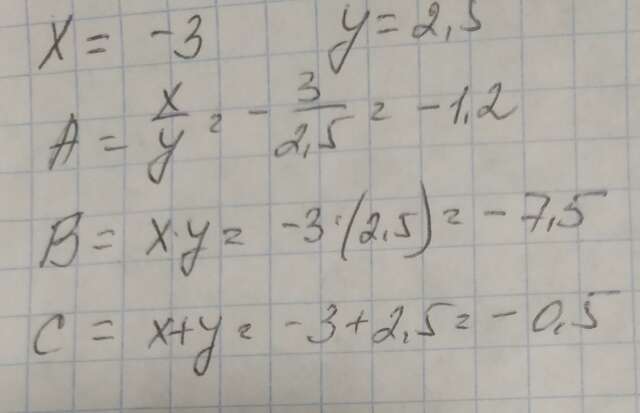 X = -3 y = 2,5
A = x/y = - 3/2,5 = -1,2
B = x·y = -3·(2,5) = -7,5
C = x+y = -3+2,5 = -0,5